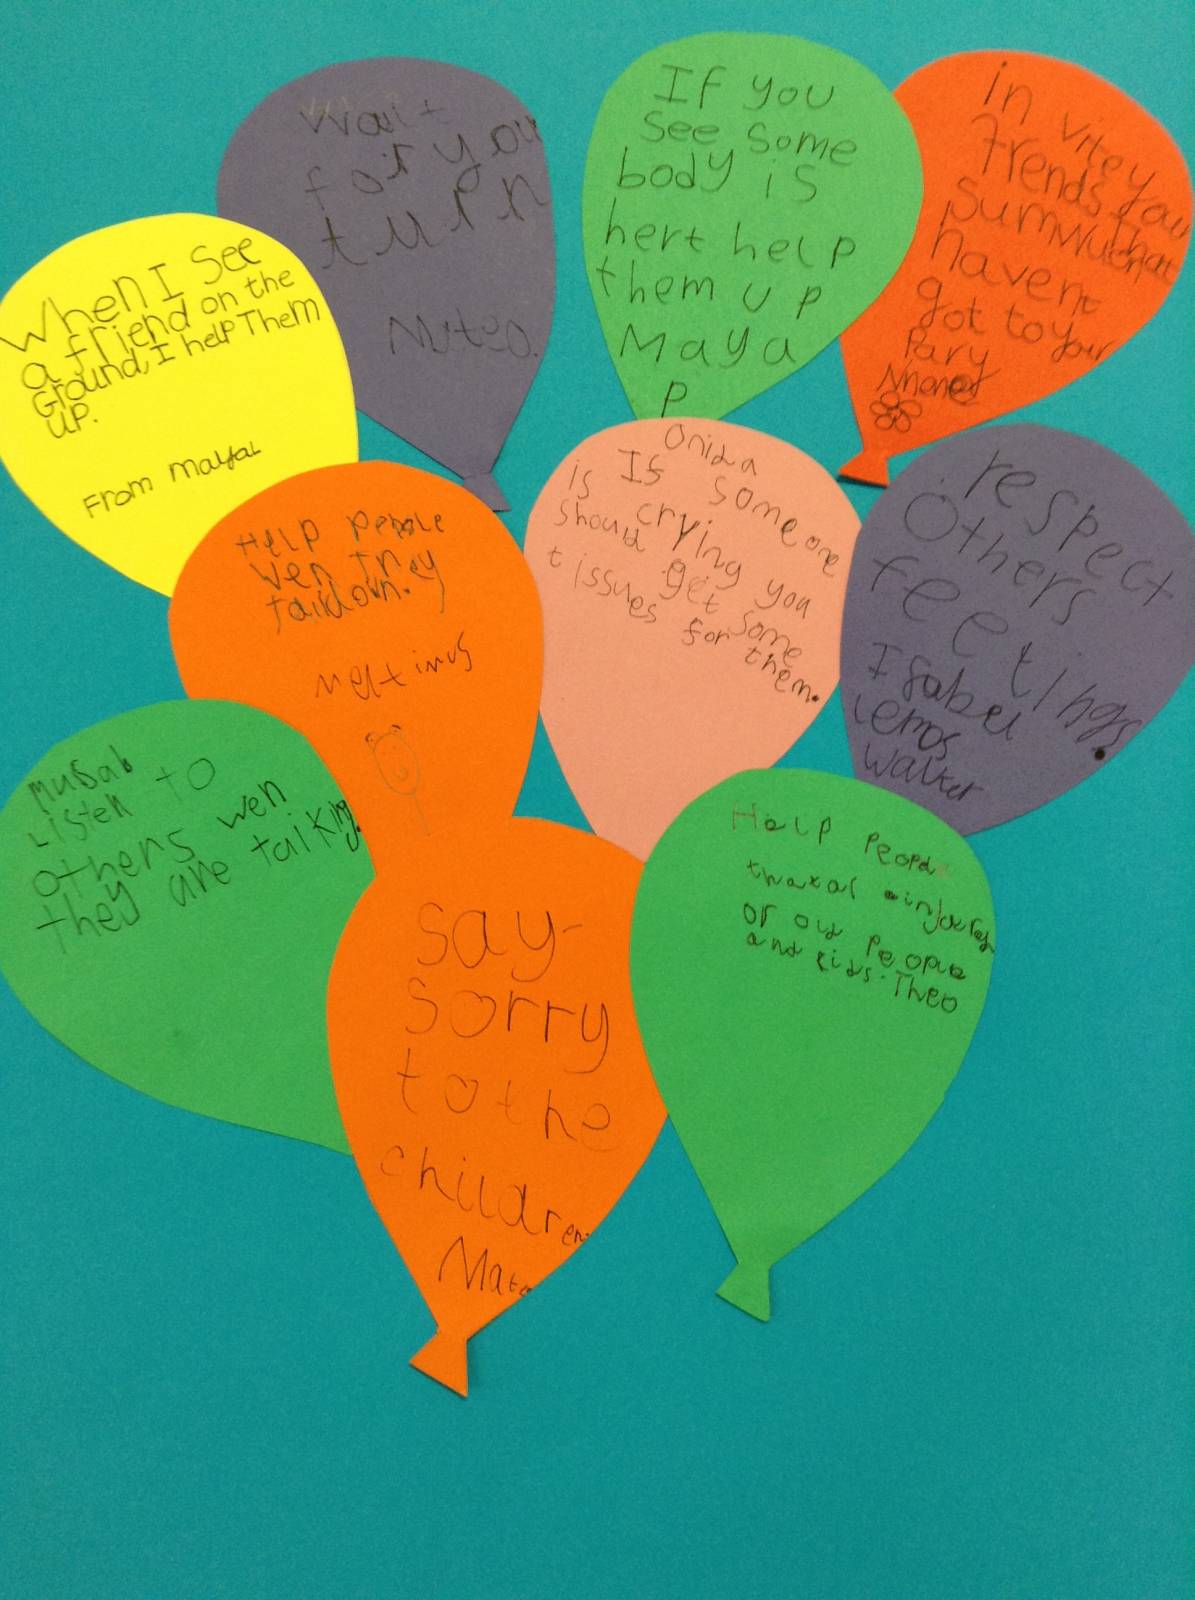 Wait
for you
turn
If you
see some
body is
hert help
them up
Maya
P
in vite you
frends that
haven
got to your
Pary
When I See
a friend on the
Ground, I help Them
up.
From
Help people
wen they
falldown.
Onida
If someone
is crying you
should get some
tissues for them.
respect
Others
feetings.
Isabel
lemos
Walker
Musab
Listen to
others wen
they are talking.
say-
sorry
to the
children
Mate
Help
or old people
and kids. Theo